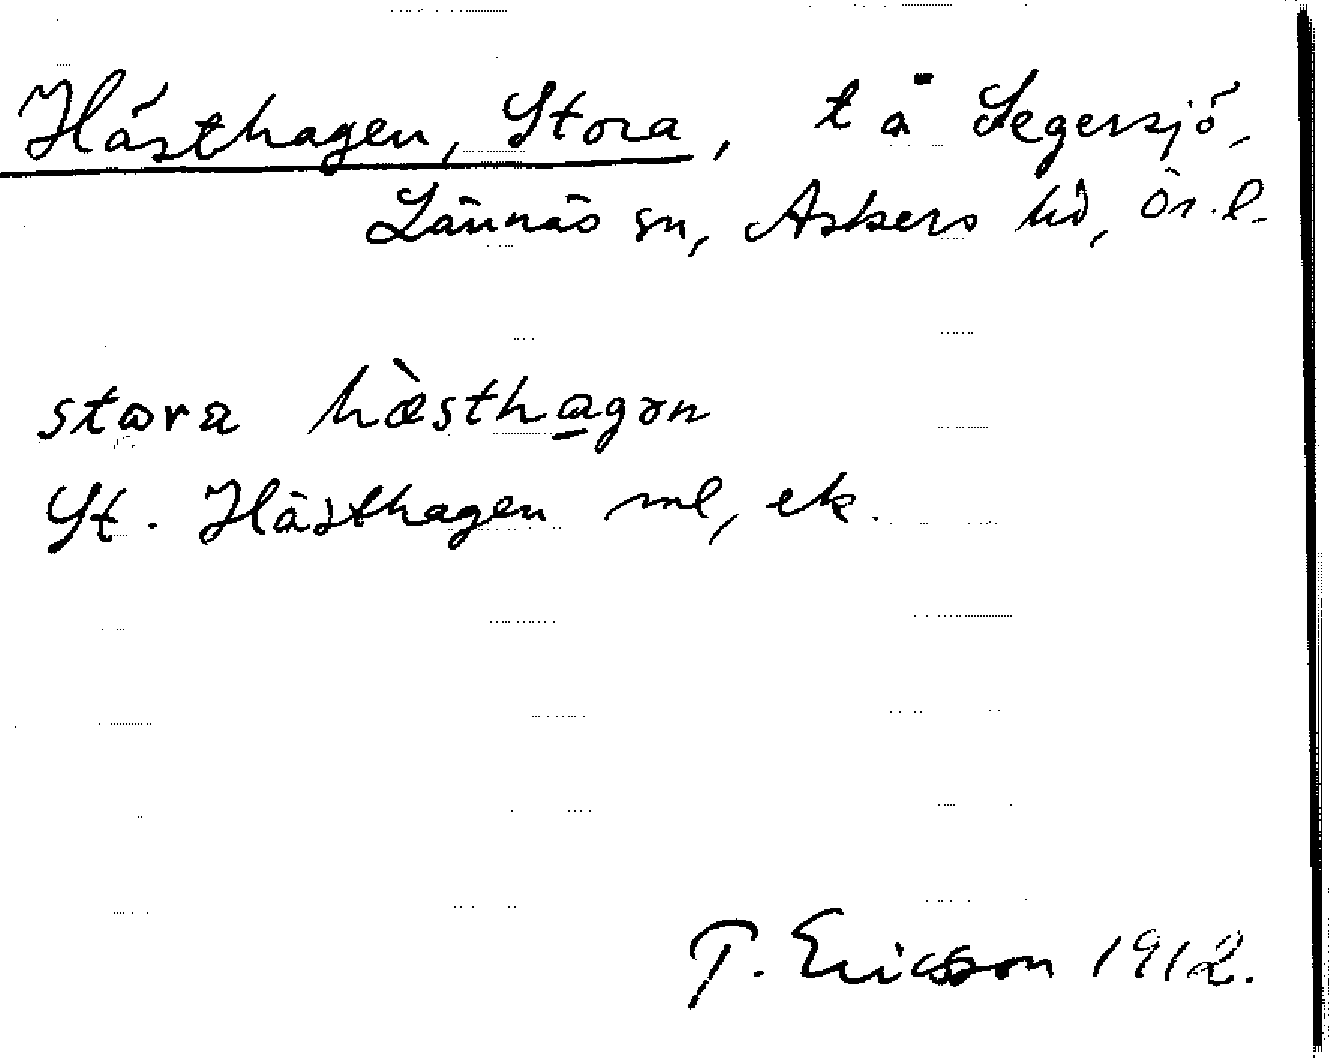 Hästhagen, Stora, t ä Segersjö,
Lännäs sn, Askers hd, Ör. l.
stora hὰsthagon
St. Hästhagen ml, ek.
T. Ericsson 1912.